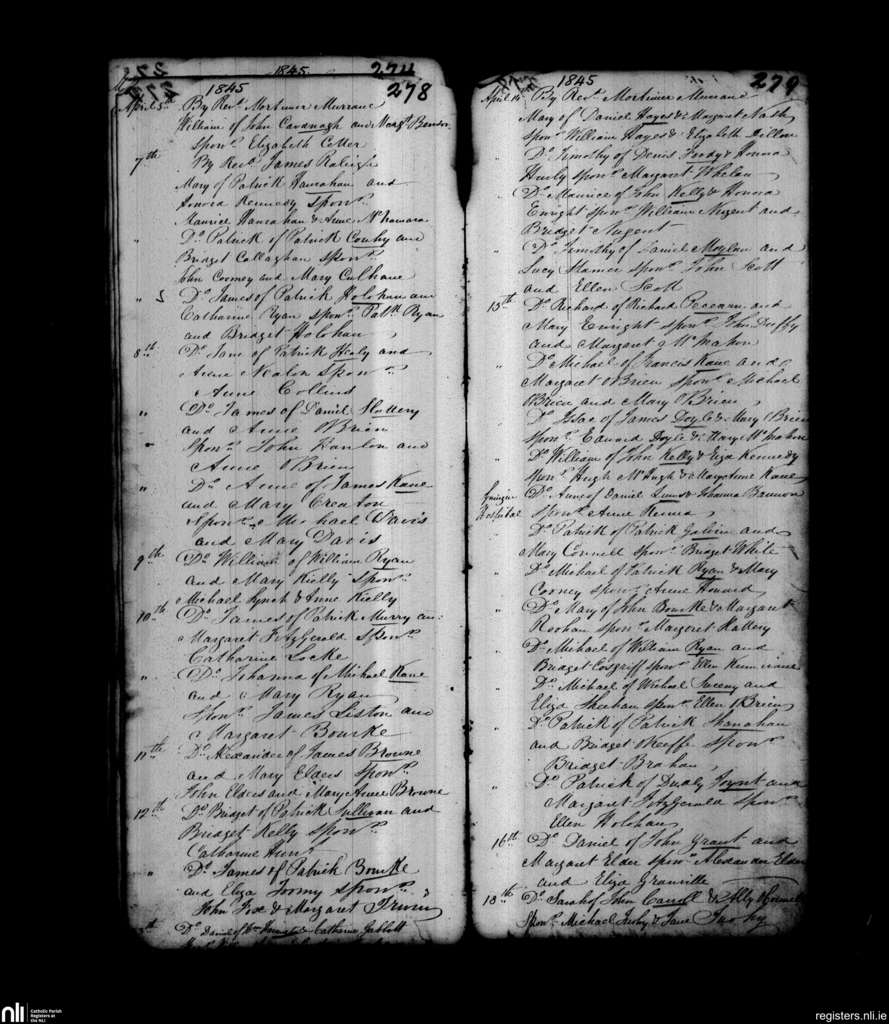 1845 274
1845 278
April 5th By Revd. Mortimer Murrane
William of John Cavanagh and Margt.
Sponr. Elizabeth
7th By Revd. James Raleigh
Mary of Patrick Hanrahan and
Honora Kennedy Sponr.
Maurice Hanrahan & Anne McNamara
" Do. Patrick of Patrick and
Bridget Callaghan Sponr.
John Cooney and Mary Culhane
" 5 Do. James of Patrick Holohan and
Catharine Ryan Sponr. Patk. Ryan
and Bridget Holohan
8th Do. Jane of Patrick Healy and
Anne Nealon Sponr.
Anne Collins
" Do. James of Daniel Slattery
and Anne OBrien
Sponr. John Hanlon and
Anne OBrien
" Do. Anne of James Kane
and Mary Creaton
Sponr. Michael Davis
and Mary Davis
9th Do. William of William Ryan
and Mary Kielly Sponr.
Michael Lynch & Anne Kielly
10th Do. James of Patrick Murry an
Margaret FitzGerald Sponr.
Catharine Locke
" Do. Johanna of Michael Kane
and Mary Ryan
Sponr. James Liston and
Margaret Bourke
11th Do. Alexander of James Browne
and Mary Elders Sponr.
John Elders and Mary Anne Browne
12th Do. Bridget of Patrick Sullivan and
Bridget Kelly Sponr.
Catharine Hunt
" Do. James of Patrick Bourke
and Eliza Sponr.
John Fox & Margaret Irwin
Do. Daniel of Wm. & Catharine
1845 279
April 14 By Revd. Mortimer Murrane
Mary of Daniel Hayes & Margaret Nash
Sponr. William Hayes & Elizabeth Dillon
" Do. Timothy of Denis & Honora
Hurly Sponr. Margaret Whelan
" Do. Maurice of John Kelly & Honora
Enright Sponr. William Nugent and
Bridget Nugent
" Do. Timothy of Daniel Moylan and
Lucy Stamer Sponr. John Scott
and Ellen Scott
15th Do. Richard of Richard and
Mary Enright Sponr. John Duffy
and Margaret McMahon
" Do. Michael of Francis Kane and
Margaret OBrien Sponr. Michael
OBrien and Mary OBrien
" Do. Isaac of James Doyle & Mary OBrien
Sponr. Edward Doyle & Mary McMahon
" Do. William of John Kelly & Eliza Kennedy
Sponr. Hugh McHugh & Mary Anne Kane
Do. Anne of Daniel & Johanna Bannon
Hospital Sponr. Anne
" Do. Patrick of Patrick Galvin and
Mary Connell Sponr. Bridget White
" Do. Michael of Patrick Ryan & Mary
Cooney Sponr. Anne Howard
" Do. Mary of John Bourke & Margaret
Sponr. Margaret Hallery
" Do. Michael of William Ryan and
Bridget Cosgriff Sponr. Ellen
" Do. Michael of Michael Sweeny and
Eliza Sheehan Sponr. Ellen OBrien
" Do. Patrick of Patrick Shanahan
and Bridget OKeeffe Sponr.
Bridget
" Do. Patrick of Dudly Joynt and
Margaret FitzGerald Sponr.
Ellen Holohan
16th Do. Daniel of John Grant and
Margaret Elder Sponr. Alexander Elder
and Eliza Granville
18th Do. Sarah of John Carroll & Ally
Sponr. Michael & Jane Tuohy
nli Catholic Parish
Registers at
the NLI
registers.nli.ie